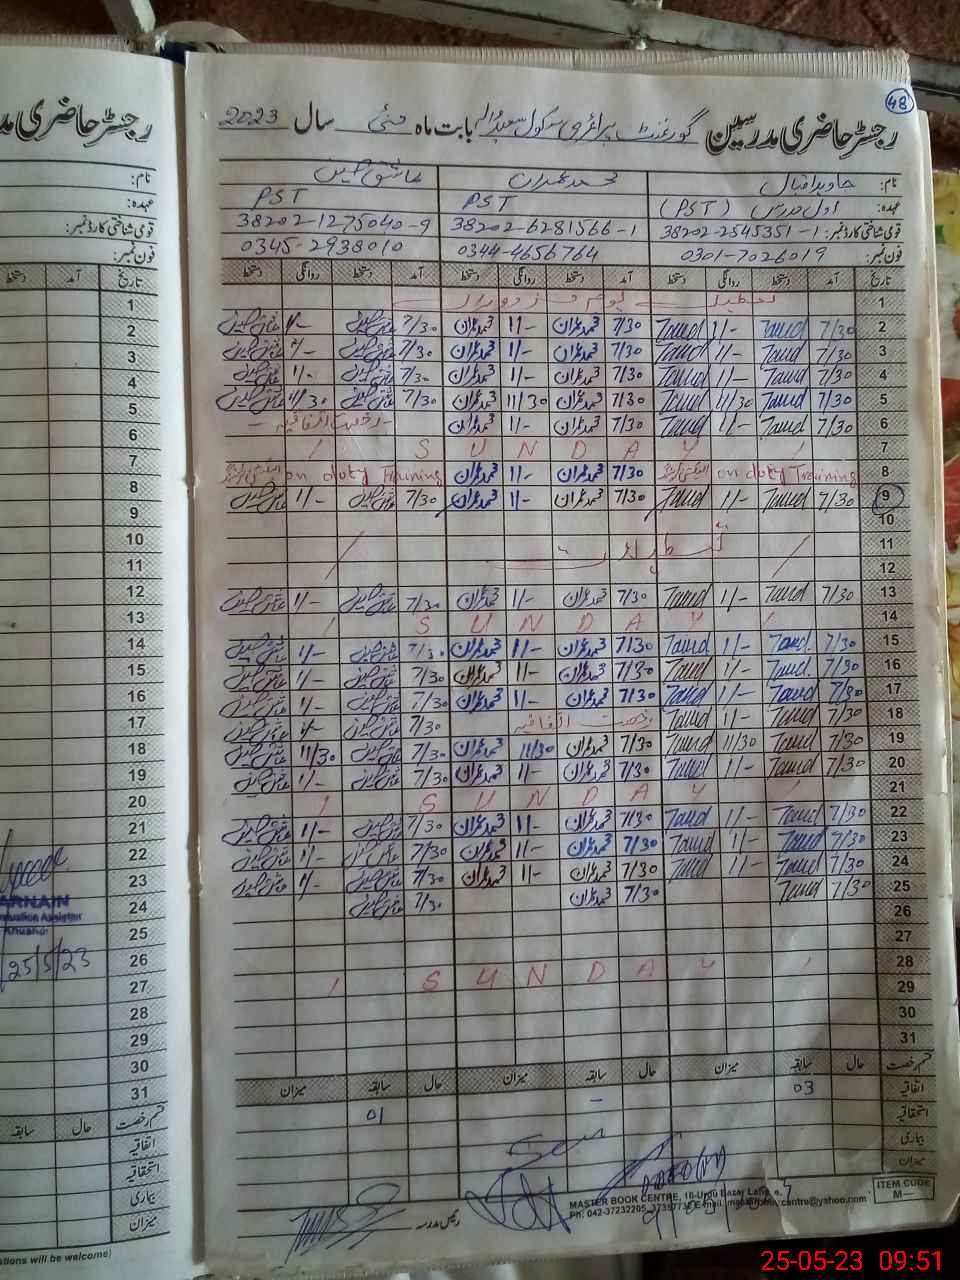 48
رجسٹر حاضری مدرسین گورنمنٹ پرائمری سکول بابت ماہ مئی سال 2023
نام: جاوید اقبال محمد عمران عاشق حسین
عہدہ: اول مدرس (PST) PST PST
قومی شناختی کارڈ نمبر: 38202-2545351-1 38202-6281566-1 38202-1275040-9
فون نمبر: 0301-7026019 0344-4656764 0345-2938010
تاریخ آمد دستخط روانگی دستخط آمد دستخط روانگی دستخط آمد دستخط روانگی دستخط
1 تعطیل یوم مزدوراں
2 7/30 Javid 1/- Javid 7/30 محمد عمران 1/- محمد عمران 7/30 عاشق حسین 1/- عاشق حسین
3 7/30 Javid 1/- Javid 7/30 محمد عمران 1/- محمد عمران 7/30 عاشق حسین 1/- عاشق حسین
4 7/30 Javid 1/- Javid 7/30 محمد عمران 1/- محمد عمران 7/30 عاشق حسین 1/- عاشق حسین
5 7/30 Javid 11/30 Javid 7/30 محمد عمران 11/30 محمد عمران 7/30 عاشق حسین 11/30 عاشق حسین
6 7/30 Javid 1/- Javid 7/30 محمد عمران 1/- محمد عمران رخصت اتفاقیہ
7 S U N D A Y
8 on duty Training 7/30 محمد عمران 1/- محمد عمران on duty Training
9 7/30 Javid 1/- Javid 7/30 محمد عمران 1/- محمد عمران 7/30 عاشق حسین 1/- عاشق حسین
10
11 تعطیلات
12
13 7/30 Javid 1/- Javid 7/30 محمد عمران 1/- محمد عمران 7/30 عاشق حسین 1/- عاشق حسین
14 S U N D A Y
15 7/30 Javid 1/- Javid 7/30 محمد عمران 1/- محمد عمران 7/30 عاشق حسین 1/- عاشق حسین
16 7/30 Javid 1/- Javid 7/30 محمد عمران 1/- محمد عمران 7/30 عاشق حسین 1/- عاشق حسین
17 7/30 Javid 1/- Javid 7/30 محمد عمران 1/- محمد عمران 7/30 عاشق حسین 1/- عاشق حسین
18 7/30 Javid 1/- Javid رخصت اتفاقیہ 7/30 عاشق حسین 1/- عاشق حسین
19 7/30 Javid 11/30 Javid 7/30 محمد عمران 11/30 محمد عمران 7/30 عاشق حسین 11/30 عاشق حسین
20 7/30 Javid 1/- Javid 7/30 محمد عمران 1/- محمد عمران 7/30 عاشق حسین 1/- عاشق حسین
21 S U N D A Y
22 7/30 Javid 1/- Javid 7/30 محمد عمران 1/- محمد عمران 7/30 عاشق حسین 1/- عاشق حسین
23 7/30 Javid 1/- Javid 7/30 محمد عمران 1/- محمد عمران 7/30 عاشق حسین 1/- عاشق حسین
24 7/30 Javid 1/- Javid 7/30 محمد عمران 1/- محمد عمران 7/30 عاشق حسین 1/- عاشق حسین
25 7/30 Javid 7/30 محمد عمران 7/30 عاشق حسین
26
27
28 S U N D A Y
29
30
31
قسم رخصت حال سابقہ میزان حال سابقہ میزان حال سابقہ میزان
اتفاقیہ 03 - 01
استحقاقیہ
بیماری
میزان
رئیس مدرسہ
MASTER BOOK CENTRE, 16-Urdu Bazar Lahore.
Ph: 042-37232205, 37357731 E-mail:
ITEM CODE
M—
رجسٹر حاضری
نام:
عہدہ:
قومی شناختی کارڈ نمبر:
فون نمبر:
تاریخ آمد دستخط
1
2
3
4
5
6
7
8
9
10
11
12
13
14
15
16
17
18
19
20
21
22
23
24
25
26
27
28
29
30
31
25/5/23
قسم رخصت حال سابقہ
اتفاقیہ
استحقاقیہ
بیماری
میزان
tions will be welcome)
25-05-23 09:51